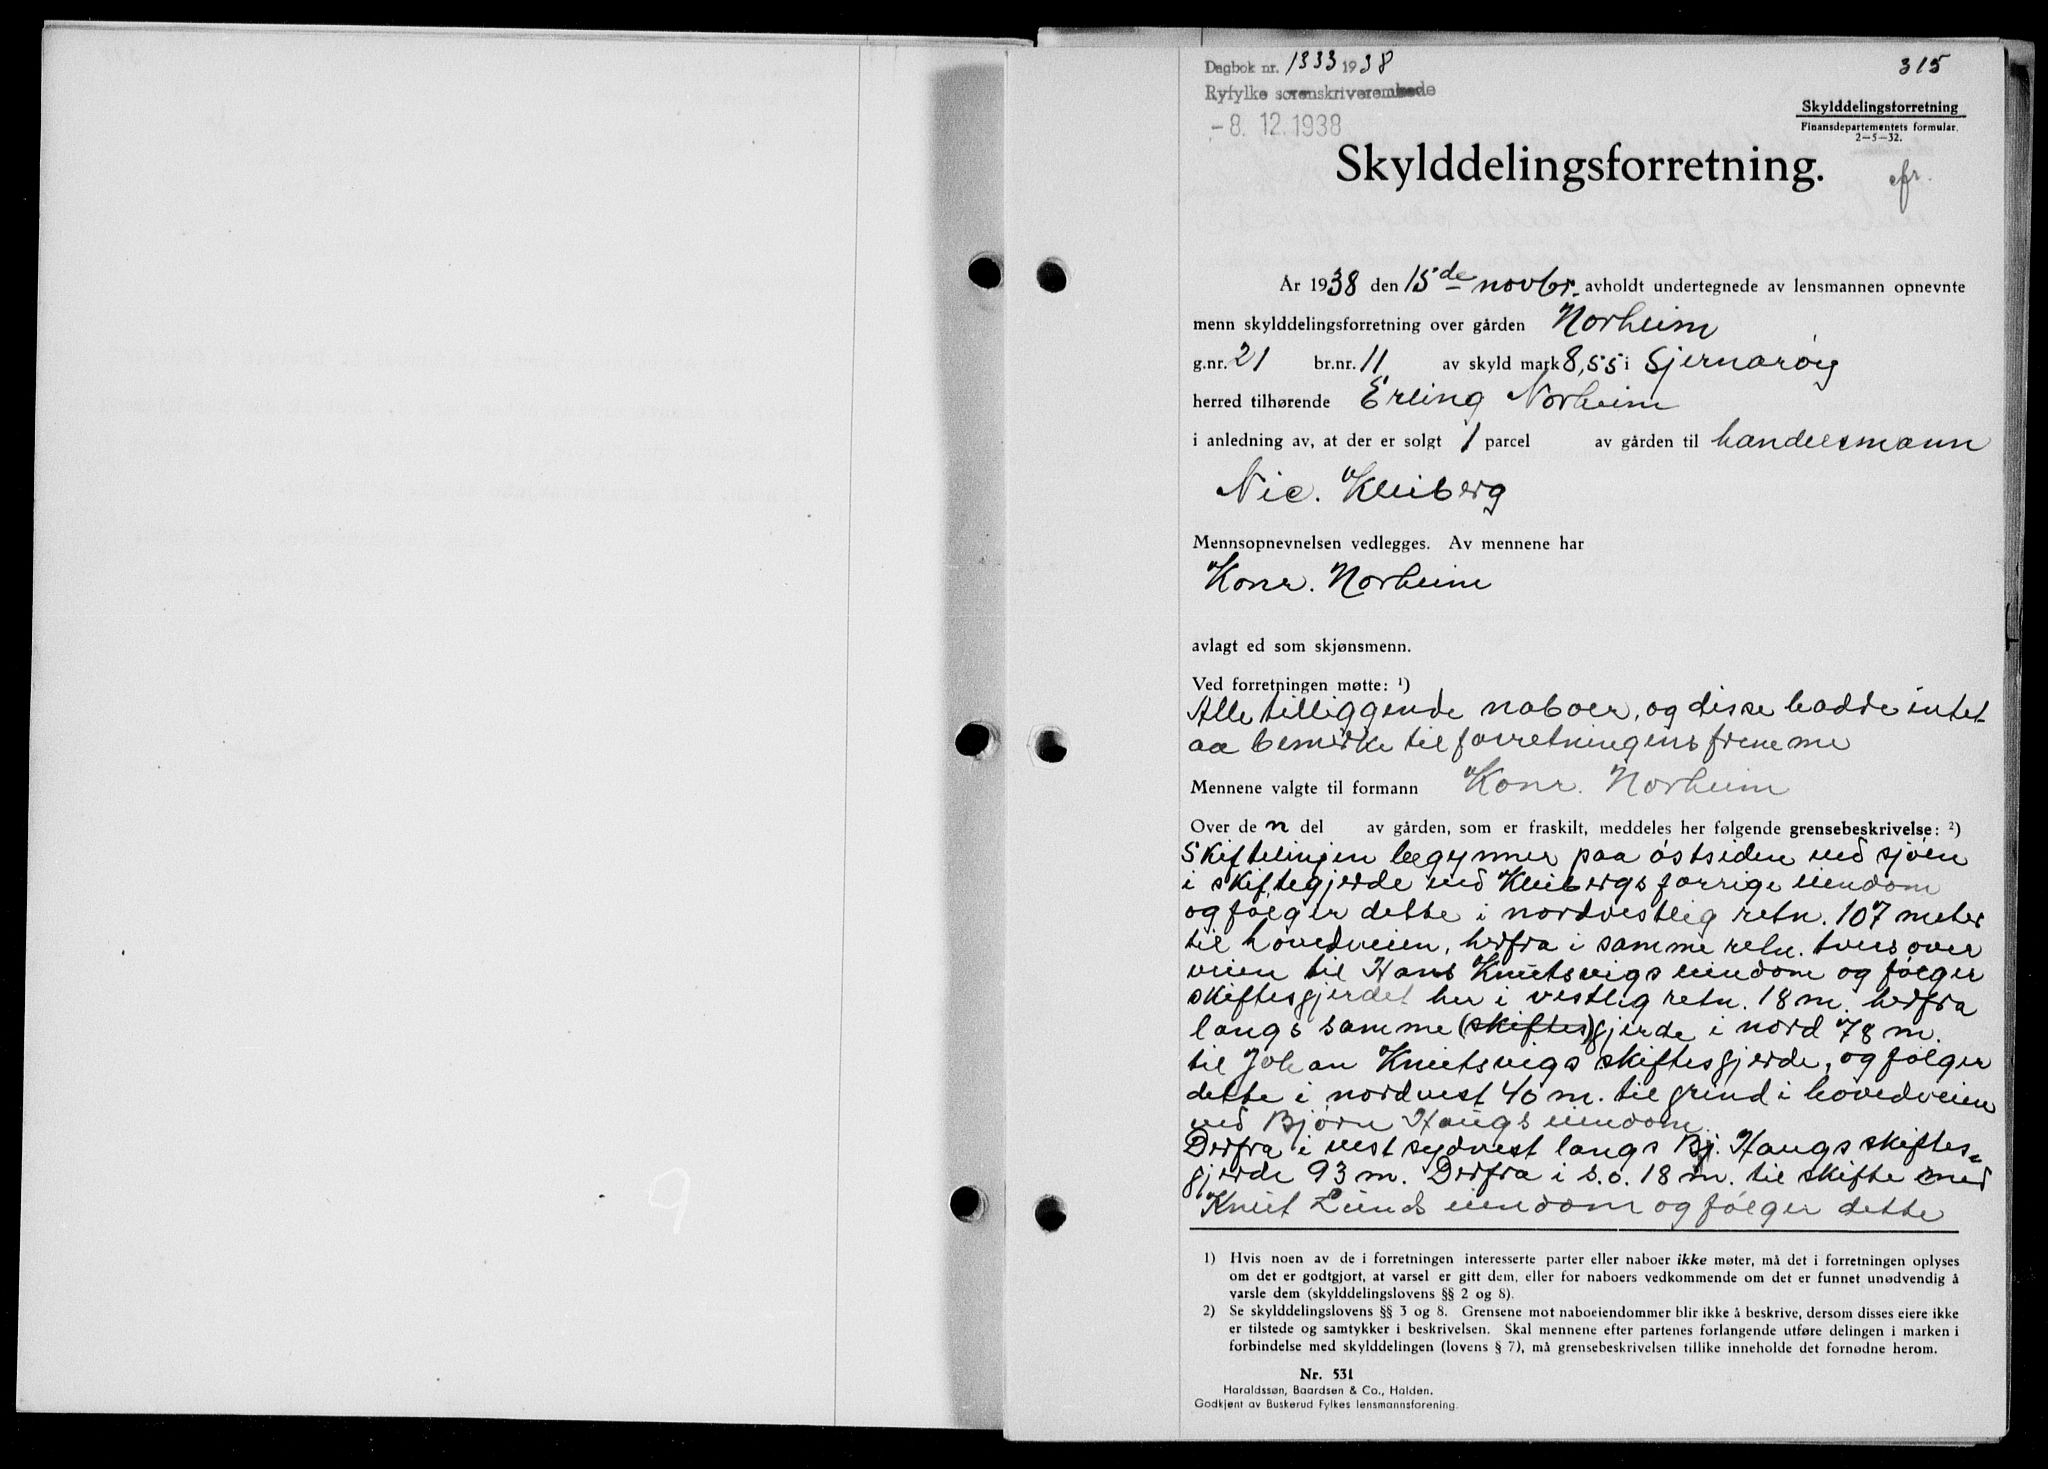 Dagbok nr. 1333 1938
Ryfylke sorenskriverembede
-8. 12. 1938
315
Skylddelingsforretning
Finansdepartementets formular.
2—5—32.
Skylddelingsforretning.
cfr.
År 1938 den 15de novbr. avholdt undertegnede av lensmannen opnevnte
menn skylddelingsforretning over gården Norheim
g.nr. 21 br.nr. 11 av skyld mark 8,55 i Sjernarøy
herred tilhørende Erling Norheim
i anledning av, at der er solgt 1 parcel av gården til handelsmann
Nic. Kleiberg
Mennsopnevnelsen vedlegges. Av mennene har
Konr. Norheim
avlagt ed som skjønsmenn.
Ved forretningen møtte: 1)
Alle tilliggende naboer, og disse hadde intet
aa bemerke til forretningens fremme
Mennene valgte til formann Konr. Norheim
Over de n del av gården, som er fraskilt, meddeles her følgende grensebeskrivelse: 2)
Skiftelinjen begynner paa østsiden ved sjøen
i skiftegjerde ved Kleibergs forrige eiendom
og følger dette i nordvestlig retn. 107 meter
til hovedveien, herfra i samme retn. tvers over
veien til Hans Knutsvigs eiendom og følger
skiftesgjerdet her i vestlig retn. 18 m. herfra
langs samme (skiftes)gjerde i nord 78 m.
til Johan Knutsvigs skiftesgjerde, og følger
dette i nordvest 40 m. til grind i hovedveien
ved Bjørn Haugs eiendom.
Derfra i vest sydvest langs Bj. Haugs skiftes-
gjerde 93 m. Derfra i s.o. 18 m. til skifte med
Knut Lunds eiendom og følger dette
1) Hvis noen av de i forretningen interesserte parter eller naboer ikke møter, må det i forretningen oplyses
om det er godtgjort, at varsel er gitt dem, eller for naboers vedkommende om det er funnet unødvendig å
varsle dem (skylddelingslovens §§ 2 og 8).
2) Se skylddelingslovens §§ 3 og 8. Grensene mot naboeiendommer blir ikke å beskrive, dersom disses eiere ikke
er tilstede og samtykker i beskrivelsen. Skal mennene efter partenes forlangende utføre delingen i marken i
forbindelse med skylddelingen (lovens § 7), må grensebeskrivelsen tillike inneholde det fornødne herom.
Nr. 531
Haraldssøn, Baardsen & Co., Halden.
Godkjent av Buskerud Fylkes lensmannsforening.
9